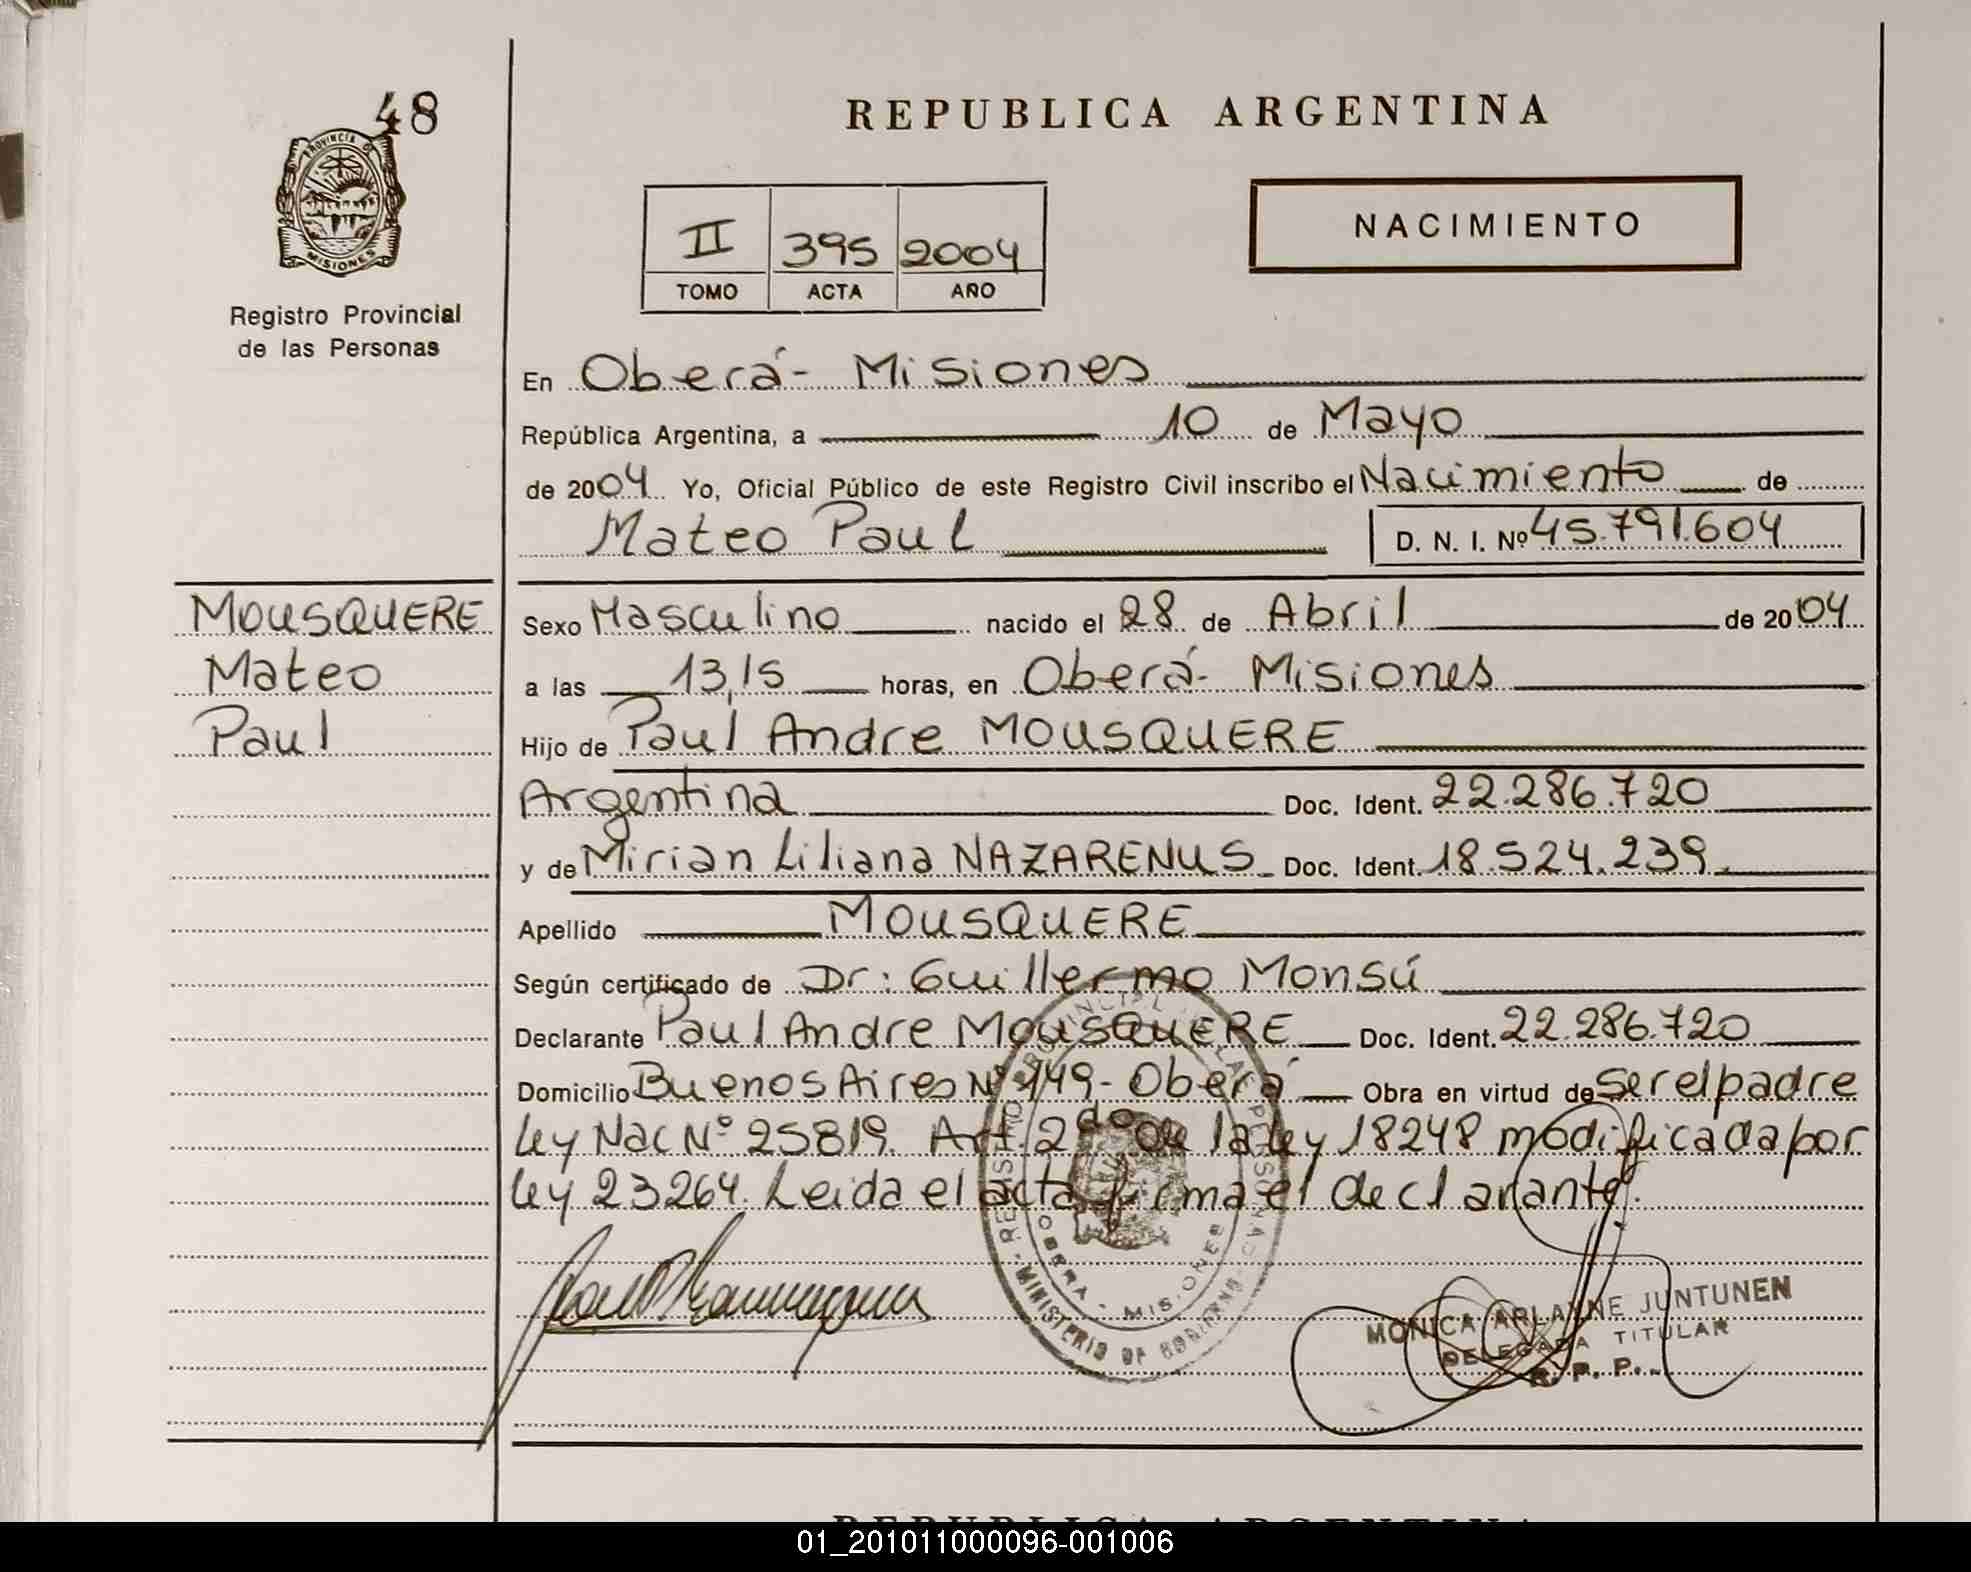 48
REPUBLICA ARGENTINA
PROVINCIA DE
MISIONES
II 395 2004
TOMO ACTA AÑO
NACIMIENTO
Registro Provincial
de las Personas
En Oberá - Misiones
República Argentina, a 10 de Mayo
de 2004 Yo, Oficial Público de este Registro Civil inscribo el Nacimiento de
Mateo Paul D. N. I. Nº 45.791.604
MOUSQUERE
Mateo
Paul
Sexo Masculino nacido el 28 de Abril de 2004
a las 13,15 horas, en Oberá - Misiones
Hijo de Paul Andre MOUSQUERE
Argentina Doc. Ident. 22.286.720
y de Mirian Liliana NAZARENUS Doc. Ident. 18.524.239
Apellido MOUSQUERE
Según certificado de Dr: Guillermo Monsú
Declarante Paul Andre MOUSQUERE Doc. Ident. 22.286.720
Domicilio Buenos Aires Nº 149 - Oberá Obra en virtud de ser el padre
Ley Nac Nº 25819. Art. 2do de la Ley 18248 modificada por
Ley 23264. Leida el acta firma el declarante.
REGISTRO PROVINCIAL DE LAS PERSONAS
OBERA - MISIONES
MINISTERIO DE GOBIERNO
MONICA ARLAYNE JUNTUNEN
DELEGADA TITULAR
R. P. P.
REPUBLICA ARGENTINA
01_201011000096-001006